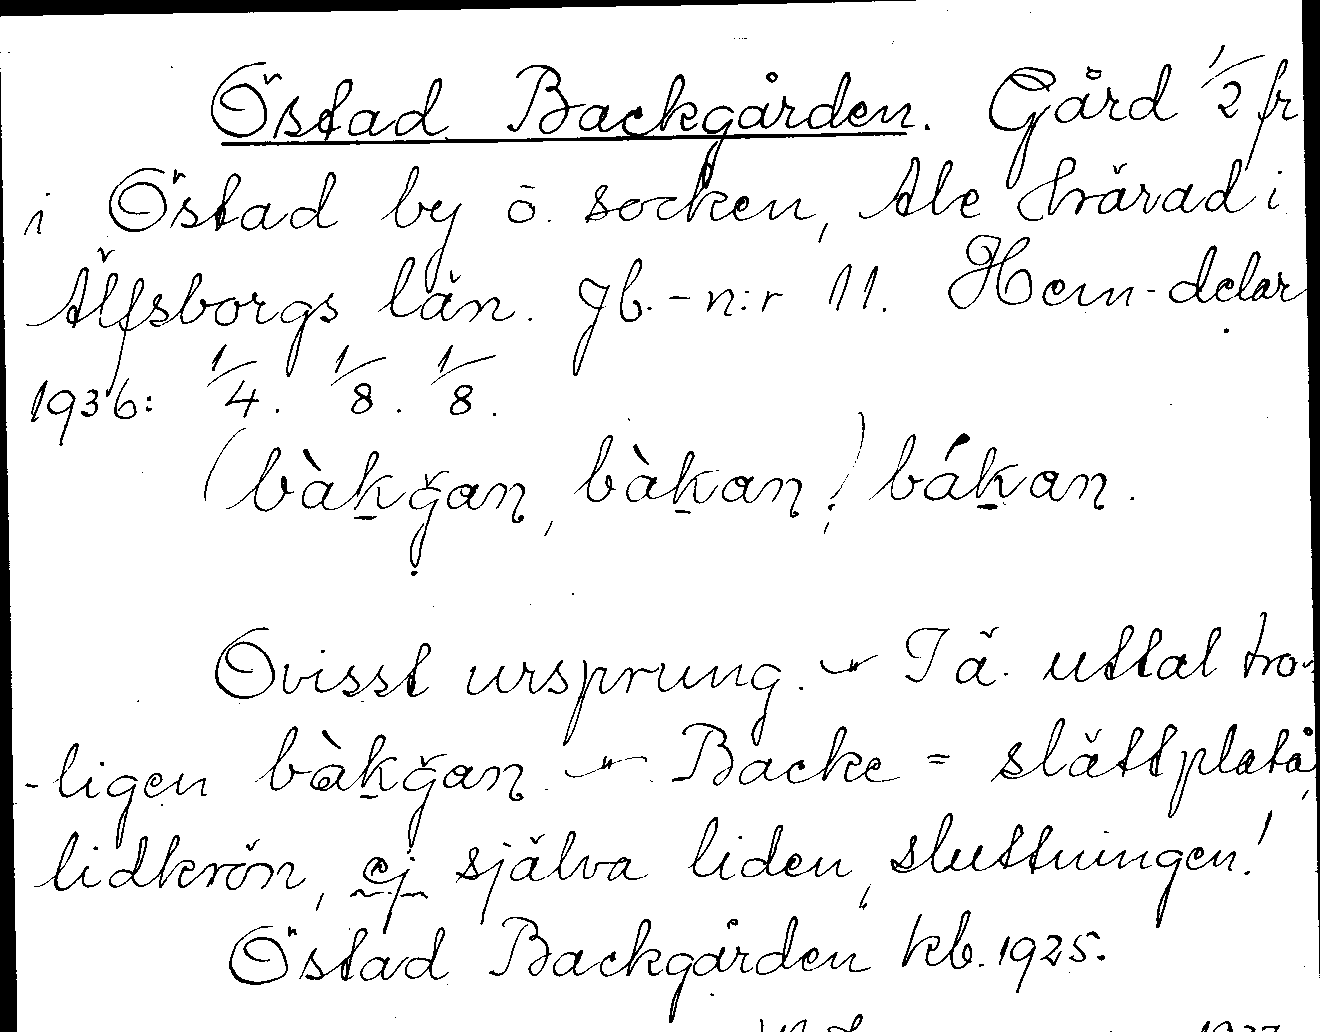 Östad Backgården. Gård 1/2 fr
i Östad by ö. socken, Ale härad i
Älfsborgs län. Jb.-n:r 11. Hem-delar
1936: 1/4. 1/8. 1/8.
(bàk̠ğan, bàk̠an!) bák̠an.
Ovisst ursprung. – Tä. uttal tro-
-ligen bàk̠ğan – Backe = slättplatå,
lidkrön, ej själva liden, sluttningen!
Östad Backgården kb. 1925.